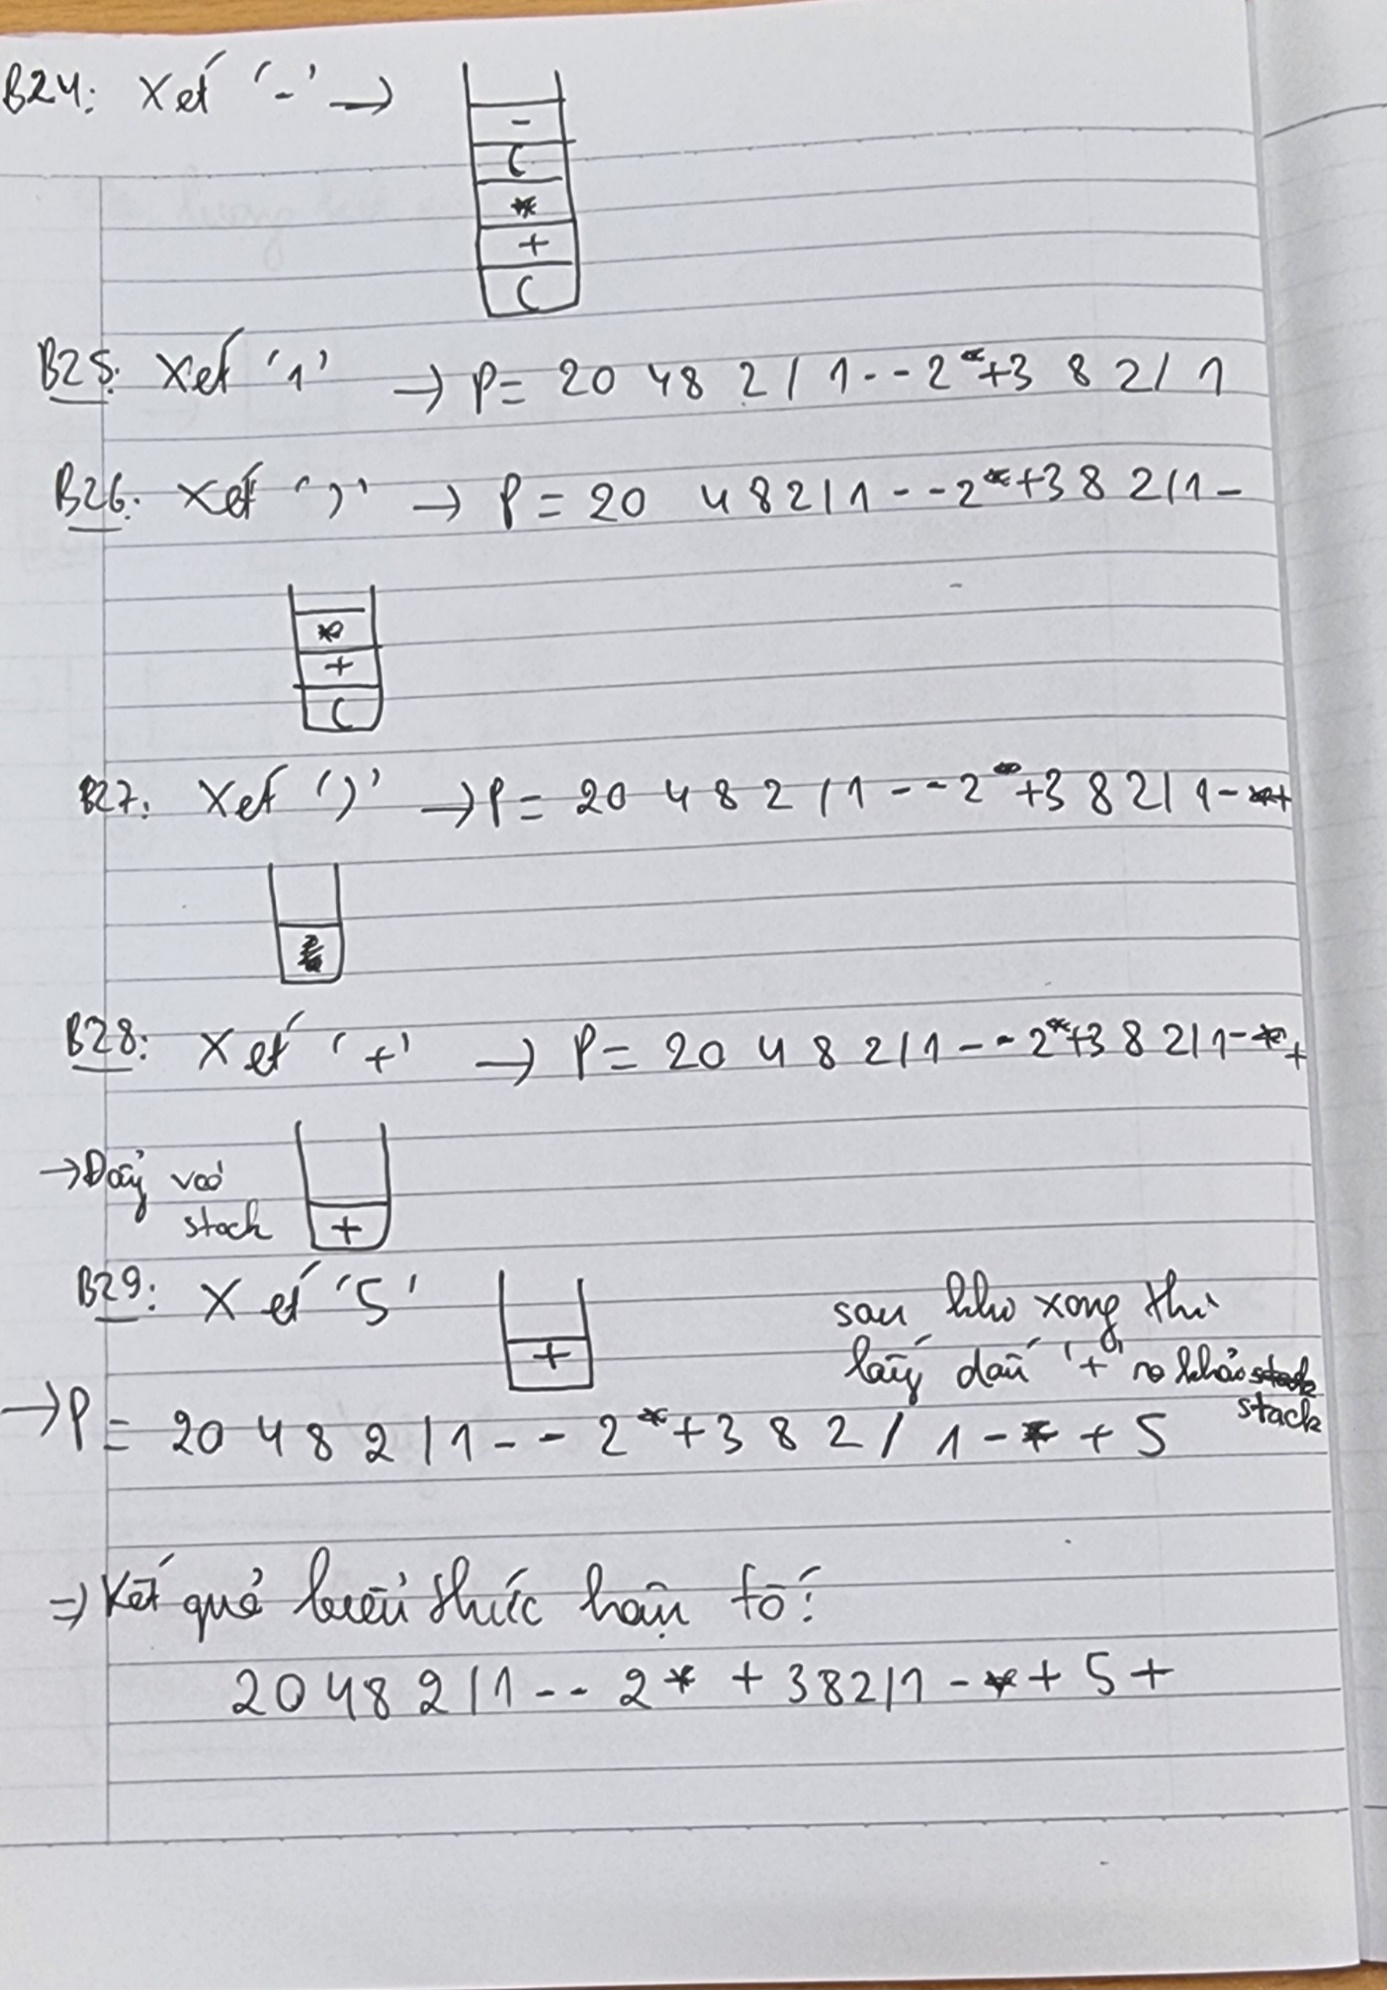 B24: Xét '-' →
-
(
*
+
(
B25: Xét '1' → P = 20 4 8 2 / 1 - - 2 * + 3 8 2 / 1
B26: Xét ')' → P = 20 4 8 2 / 1 - - 2 * + 3 8 2 / 1 -
*
+
(
B27: Xét ')' → P = 20 4 8 2 / 1 - - 2 * + 3 8 2 / 1 - * +
B28: Xét '+' → P = 20 4 8 2 / 1 - - 2 * + 3 8 2 / 1 - * +
→ Đẩy vào
stack
+
B29: Xét '5'
+
sau khi xong thì
lấy dấu '+' ra khỏi
stack
→ P = 20 4 8 2 / 1 - - 2 * + 3 8 2 / 1 - * + 5
⇒ Kết quả biểu thức hậu tố:
20 4 8 2 / 1 - - 2 * + 3 8 2 / 1 - * + 5 +